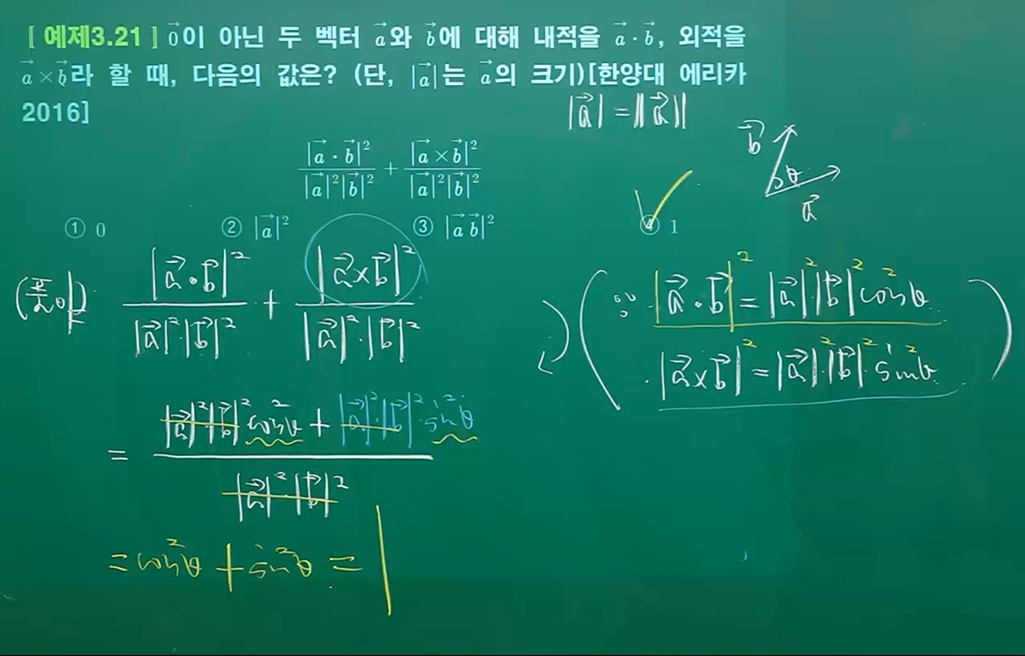 [ 예제3.21 ] $\vec{0}$이 아닌 두 벡터 $\vec{a}$와 $\vec{b}$에 대해 내적을 $\vec{a} \cdot \vec{b}$, 외적을
$\vec{a} \times \vec{b}$라 할 때, 다음의 값은? (단, $|\vec{a}|$는 $\vec{a}$의 크기)[한양대 에리카
2016]
$|\vec{a}| = \|\vec{a}\|$
$\vec{b}$ $\theta$ $\vec{a}$
$\frac{|\vec{a} \cdot \vec{b}|^2}{|\vec{a}|^2|\vec{b}|^2} + \frac{|\vec{a} \times \vec{b}|^2}{|\vec{a}|^2|\vec{b}|^2}$
① 0 ② $|\vec{a}|^2$ ③ $|\vec{a}\,\vec{b}|^2$ ④ 1
(풀이) $\frac{|\vec{a} \cdot \vec{b}|^2}{|\vec{a}|^2 \cdot |\vec{b}|^2} + \frac{|\vec{a} \times \vec{b}|^2}{|\vec{a}|^2 \cdot |\vec{b}|^2}$
$= \frac{|\vec{a}|^2 \cdot |\vec{b}|^2 \cos^2\theta + |\vec{a}|^2 \cdot |\vec{b}|^2 \cdot \sin^2\theta}{|\vec{a}|^2 \cdot |\vec{b}|^2}$
$= \cos^2\theta + \sin^2\theta = 1$
$\because |\vec{a} \cdot \vec{b}|^2 = |\vec{a}|^2 \cdot |\vec{b}|^2 \cos^2\theta$
$\cdot |\vec{a} \times \vec{b}|^2 = |\vec{a}|^2 \cdot |\vec{b}|^2 \cdot \sin^2\theta$